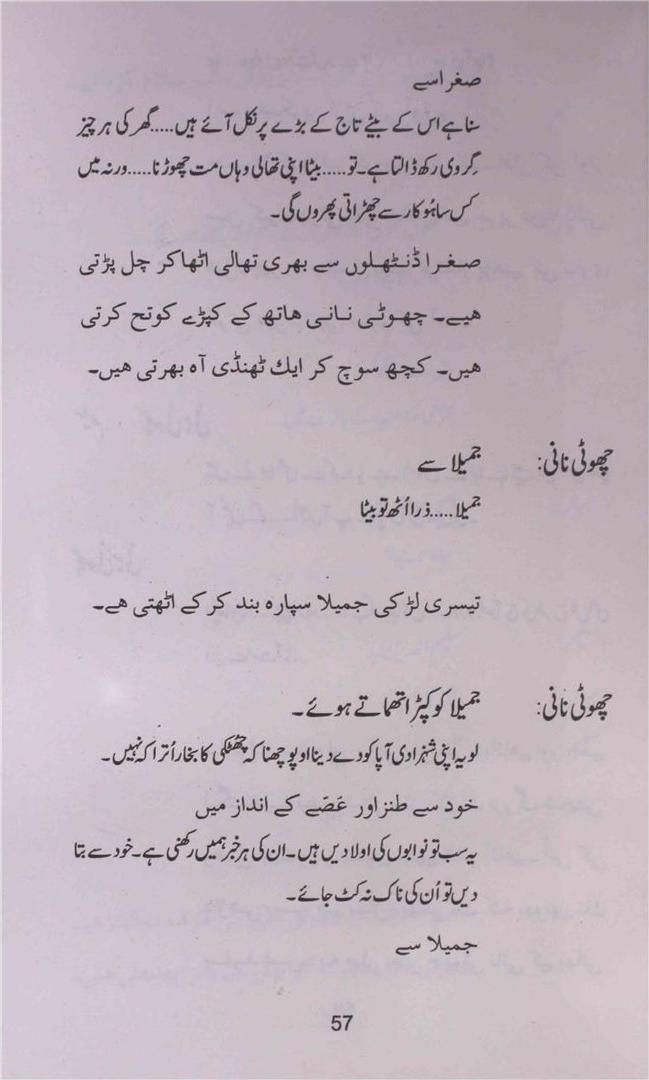 صغرا سے
سنا ہے اس کے بیٹے تاج کے بڑے پر نکل آئے ہیں.....گھر کی ہر چیز
گِروی رکھ ڈالتا ہے۔ تو.....بیٹا اپنی تھالی وہاں مت چھوڑنا.....ورنہ میں
کس ساہُوکار سے چھڑاتی پھروں گی۔
صغرا ڈنٹھلوں سے بھری تھالی اٹھاکر چل پڑتی
ھیے۔ چھوٹی نانی ھاتھ کے کپڑے کوتح کرتی
ھیں۔ کچھ سوچ کر ایك ٹھنڈی آہ بھرتی ھیں۔
چھوٹی نانی: جمیلا سے
جمیلا.....ذرا اُٹھ تو بیٹا
تیسری لڑکی جمیلا سپارہ بند کر کے اٹھتی ھے۔
چھوٹی نانی: جمیلا کو کپڑا تھماتے ہوئے۔
لو یہ اپنی شہزادی آپا کو دے دینا او پوچھنا کہ چُھٹکی کا بخار اُترا کہ نہیں۔
خود سے طنز اور غصّے کے انداز میں
یہ سب تو نوابوں کی اولادیں ہیں۔ ان کی ہر خبر ہمیں رکھنی ہے۔ خود سے بتا
دیں تو اُن کی ناک نہ کٹ جائے۔
جمیلا سے
57